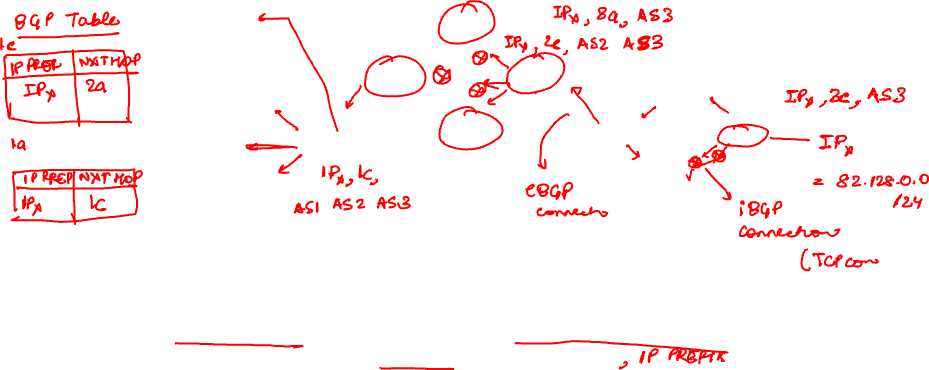 BGP Table
1c
IP PREF NXT HOP
IPx 2a
1a
IP PREF NXT HOP
IPx 1c
IPx, 1c,
AS1 AS2 AS3
IPx, 3a, AS3
IPx, 2c, AS2 AS3
eBGP
connectn
IPx, 3c, AS3
IPx
= 82.128.0.0
/24
iBGP
connection
(TCP con
, IP PREFIX